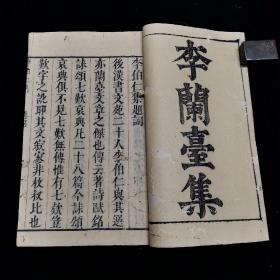 李蘭臺集
李伯仁集題詞
後漢書文苑二十人李伯仁與其選
亦蘭臺文章之傑也傳云著詩賦銘
誄頌七歎哀典凡二十八篇今誄頌
哀典俱不見七歎無傳惟有七欵豈
歎字之訛耶其文寂寥非枚叔比也